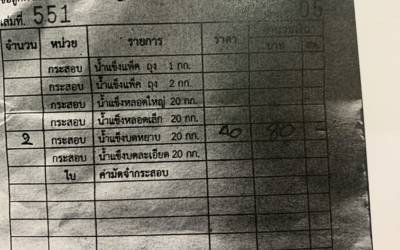 เล่มที่. 551 05
จำนวน หน่วย รายการ ราคา จำนวนเงิน
บาท
กระสอบ น้ำแข็งแพ็ค ถุง 1 กก.
กระสอบ น้ำแข็งแพ็ค ถุง 2 กก.
กระสอบ น้ำแข็งหลอดใหญ่ 20 กก.
กระสอบ น้ำแข็งหลอดเล็ก 20 กก.
2 กระสอบ น้ำแข็งบดหยาบ 20 กก. 40 80 -
กระสอบ น้ำแข็งบดละเอียด 20 กก.
ใบ ค่ามัดจำกระสอบ